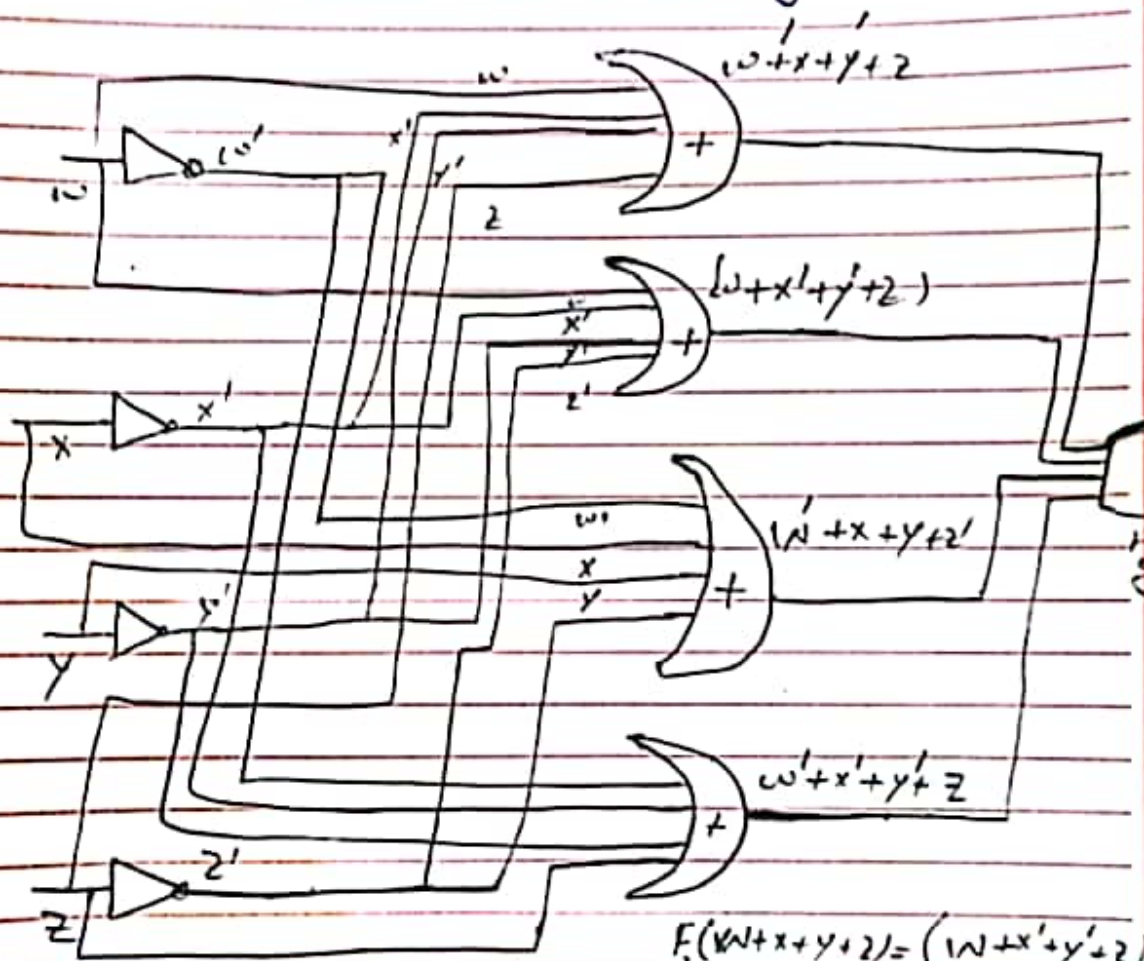 w
w'+x'+y'+z
w'
x'
y'
w
z
(w+x'+y'+z)
x'
y'
z'
x'
x
w'
w'+x+y+z'
x
y
y'
y
w'+x'+y'+z
z'
z
F(w+x+y+z)=(w+x'+y'+z